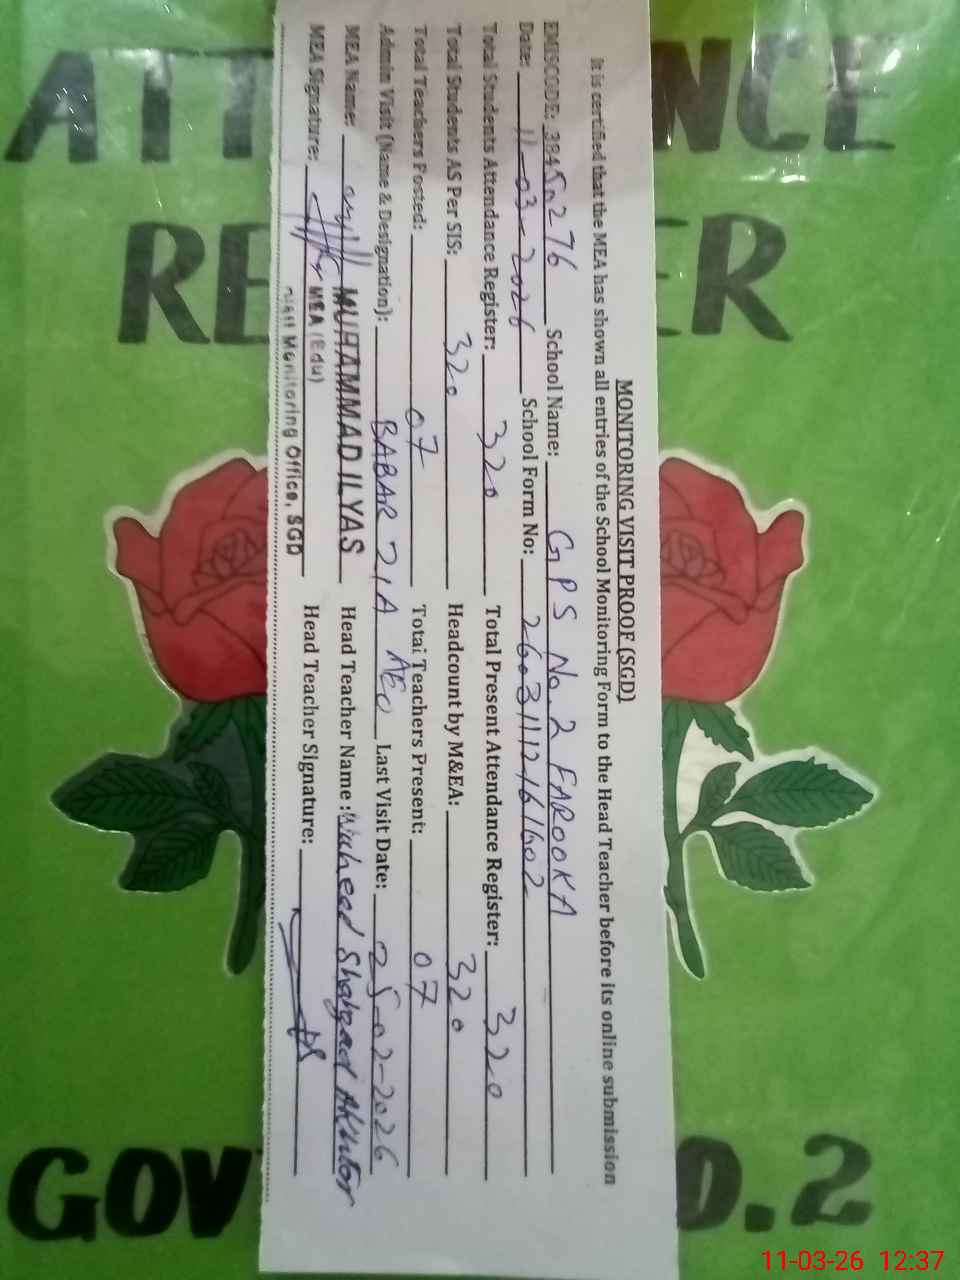 MONITORING VISIT PROOF (SGD)
It is certified that the MEA has shown all entries of the School Monitoring Form to the Head Teacher before its online submission
EMISCODE: 38450276 School Name: GPS No. 2 FAROOKA
Date: 11-03-2026 School Form No: 26031112161602
Total Students Attendance Register: 320 Total Present Attendance Register: 320
Total Students AS Per SIS: 320 Headcount by M&EA: 320
Total Teachers Posted: 07 Total Teachers Present: 07
Admin Visit (Name & Designation): BABAR ZIA AEO Last Visit Date: 25-02-2026
MEA Name: MUHAMMAD ILYAS Head Teacher Name : Waheed Shahzad Akhtar
MEA Signature: MEA (Edu) Head Teacher Signature:
Monitoring Office, SGD
ATT NCE
RE ER
GOV O.2
11-03-26 12:37